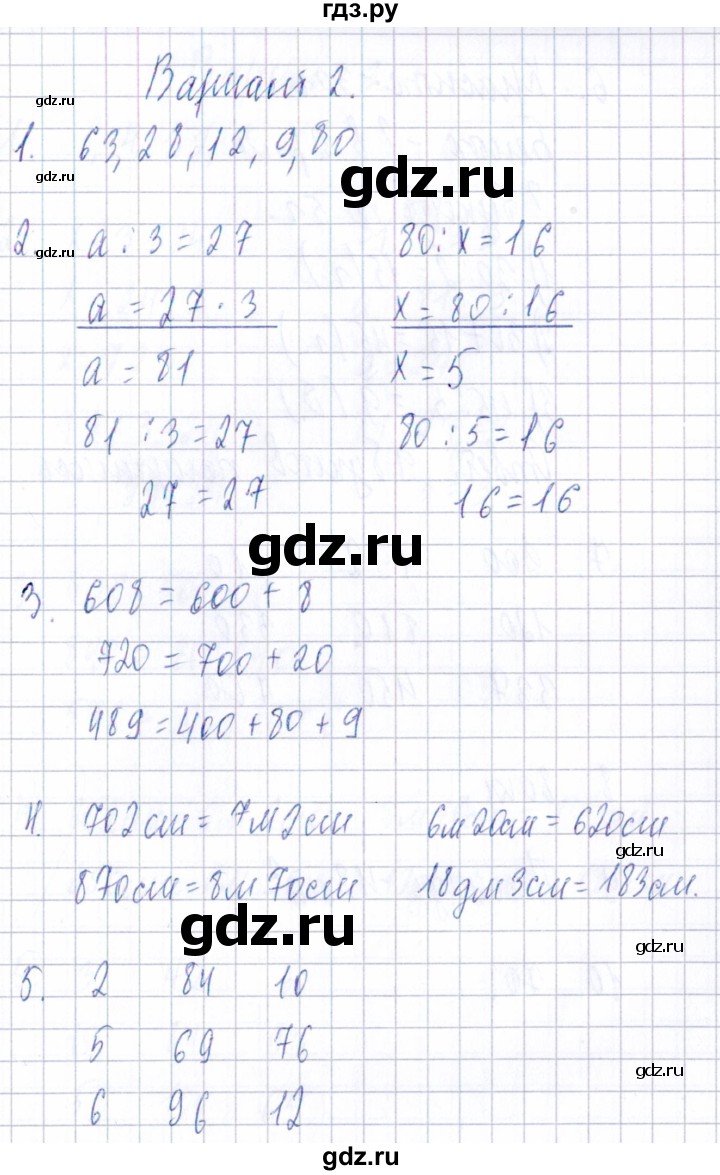 гдз.ру
Вариант 2.
gdz.ru
1. 63, 28, 12, 9, 80
gdz.ru
gdz.ru
2 gdz.ru a : 3 = 27 80 : x = 16
a = 27 · 3 x = 80 : 16
a = 81 x = 5
81 : 3 = 27 80 : 5 = 16
27 = 27 16 = 16
gdz.ru
3. 608 = 600 + 8
720 = 700 + 20
489 = 400 + 80 + 9
4. 702 см = 7 м 2 см 6 м 20 см = 620 см
gdz.ru
870 см = 8 м 70 см 18 дм 3 см = 183 см.
gdz.ru
gdz.ru
5. 2 84 10
5 69 76
gdz.ru
6 96 12
gdz.ru